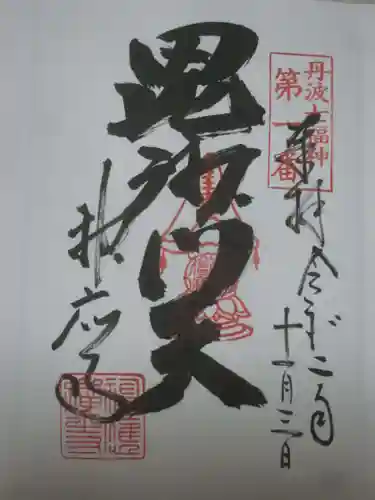 丹波七福神
第一番
奉拝 令和二年
十一月三日
毘沙門天